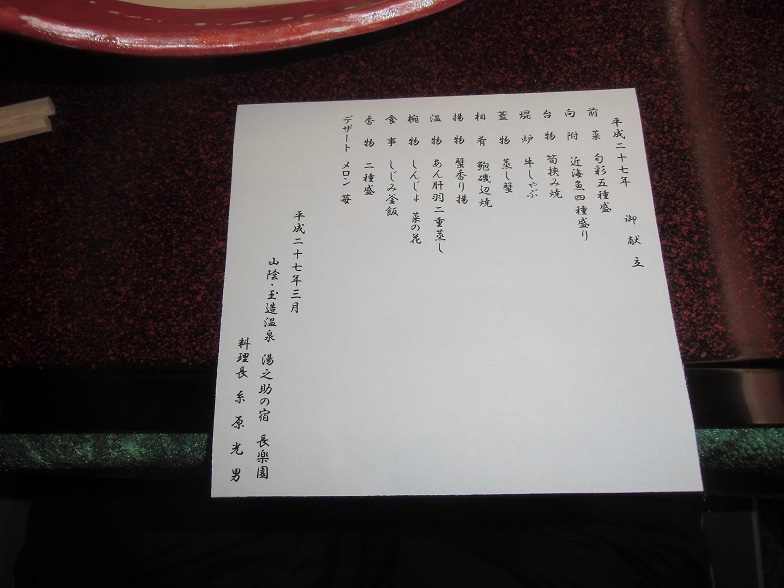 平成二十七年 御献立
前菜 旬彩五種盛
向附 近海魚四種盛り
台物 筍挟み焼
焜炉 牛しゃぶ
蓋物 蒸し蟹
相肴 鮑磯辺焼
揚物 蟹香り揚
温物 あん肝羽二重蒸し
椀物 しんじょ 菜の花
食事 しじみ釜飯
香物 二種盛
デザート メロン 苺
平成二十七年三月
山陰・玉造温泉 湯之助の宿 長楽園
料理長 糸原光男